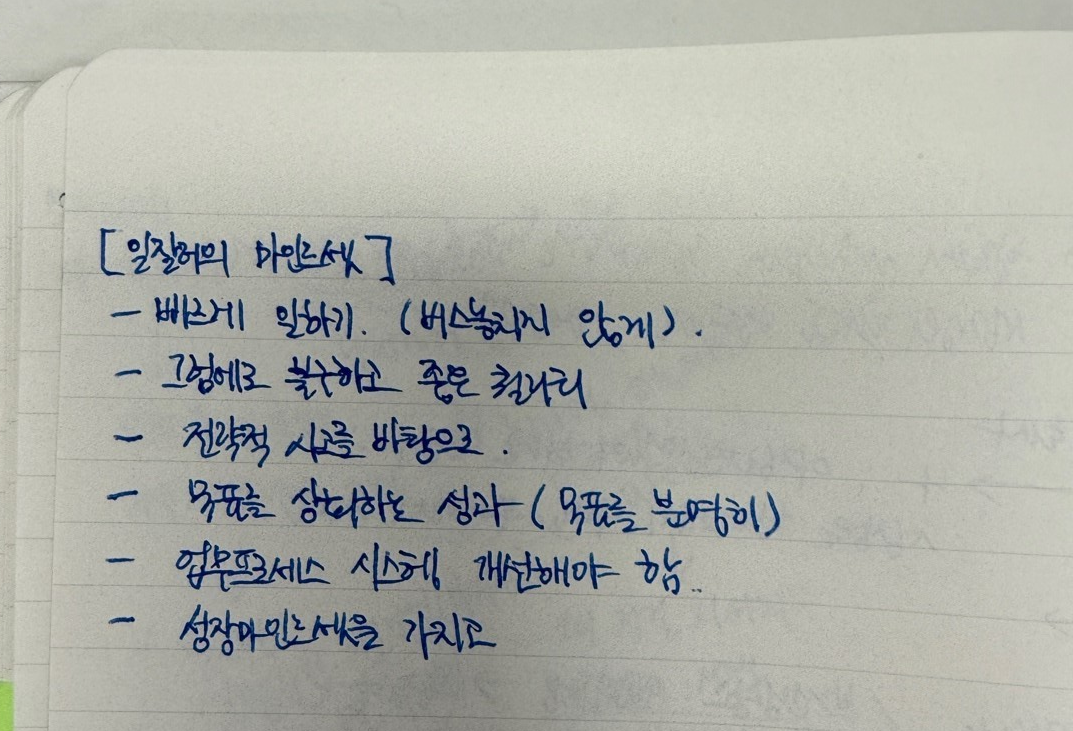 [일잘러의 마인드셋]
- 빠르게 일하기. (버스놓치지 않게).
- 그럼에도 불구하고 좋은 퀄리티
- 전략적 사고를 바탕으로.
- 목표를 상회하는 성과 (목표를 분명히)
- 업무프로세스 시스템 개선해야 함..
- 성장마인드셋을 가지고